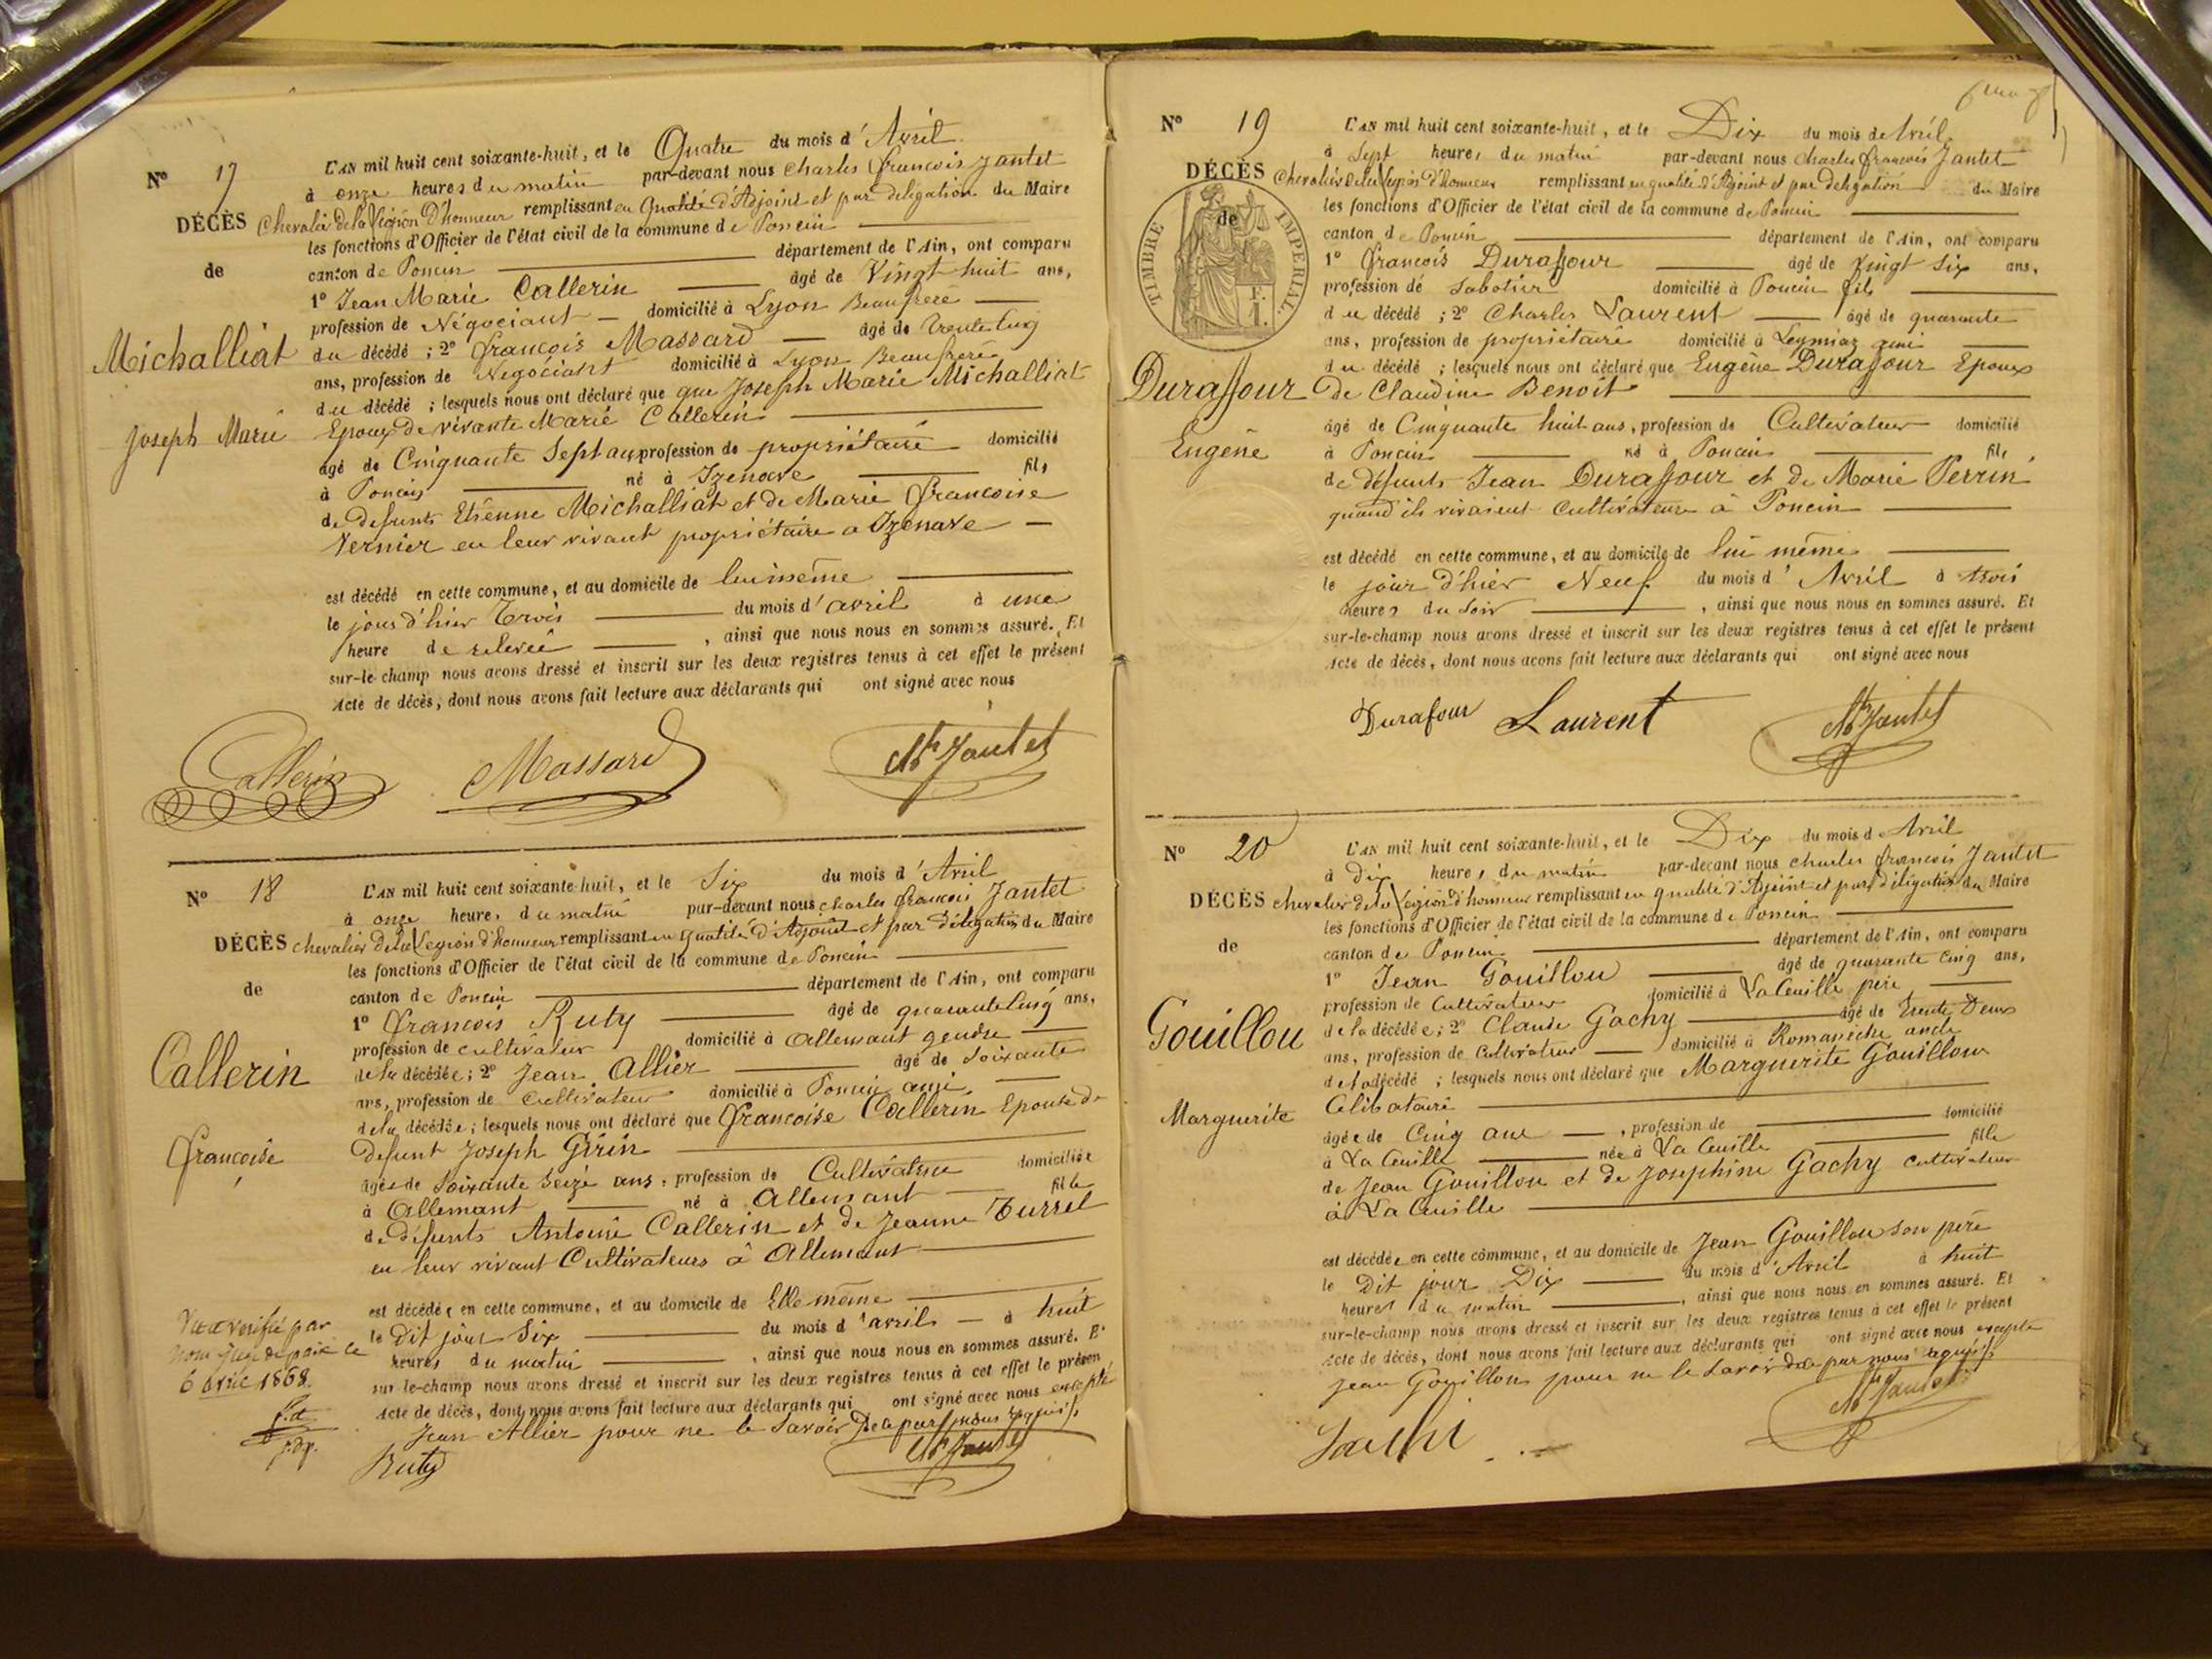 Nº 17
DÉCÈS
de
Michalliat
Joseph Marie
L'AN mil huit cent soixante-huit, et le Quatre du mois d'Avril
à onze heures du matin par-devant nous Charles François Jantet
Chevalier de la Légion D'honneur remplissant en Qualité d'Adjoint et par deligation du Maire
les fonctions d'Officier de l'état civil de la commune de Poncin
canton de Poncin département de l'Ain, ont comparu
1º Jean Marie Callerin âgé de Vingt huit ans,
profession de Négociant domicilié à Lyon Beaufrère
du décédé ; 2º François Massard âgé de trente cinq
ans, profession de Négociant domicilié à Lyon Beaufrère
du décédé ; lesquels nous ont déclaré que que Joseph Marie Michalliat
Epoux de vivante Marie Callerin
âgé de Cinquante Sept ans profession de propriétaire domicilié
à Poncin né à Izenave fils
de defunts Etienne Michalliat et de Marie Françoise
Vernier en leur vivant propriétaire a Izenave
est décédé en cette commune, et au domicile de lui même
le jour d'hier Trois du mois d'avril à une
heure de relevée , ainsi que nous nous en sommes assuré. Et
sur-le-champ nous avons dressé et inscrit sur les deux registres tenus à cet effet le présent
Acte de décès, dont nous avons fait lecture aux déclarants qui ont signé avec nous
Callerin Massard Jantet
Nº 18
DÉCÈS
de
Callerin
Françoise
L'AN mil huit cent soixante-huit, et le Six du mois d'Avril
à onze heures du matin par-devant nous Charles François Jantet
chevalier de la Légion d'honneur remplissant en Qualité d'Adjoint et par déligation du Maire
les fonctions d'Officier de l'état civil de la commune de Poncin
canton de Poncin département de l'Ain, ont comparu
1º François Ruty âgé de quarante cinq ans,
profession de cultivateur domicilié à Allemant gendre
de la décédée ; 2º Jean Allier âgé de Soixante
ans, profession de Cultivateur domicilié à Poncin ami
de la décédée ; lesquels nous ont déclaré que Françoise Callerin Epouse de
defunt Joseph Girin
âgée de Soixante Seize ans, profession de Cultivatrice domiciliée
à Allemant né à Allemant fille
de défunts Antoine Callerin et de Jeanne Turrel
en leur vivant Cultivateurs à Allemant
est décédée en cette commune, et au domicile de Elle même
le Dit jour Six du mois d'avril à huit
heures du matin , ainsi que nous nous en sommes assuré. Et
sur-le-champ nous avons dressé et inscrit sur les deux registres tenus à cet effet le présent
Acte de décès, dont nous avons fait lecture aux déclarants qui ont signé avec nous excepté
Jean Allier pour ne le Savoir De ce par nous requis
Vu et verifié par
nous Juge de paix ce
6 avril 1868.
Ruty Jantet
Nº 19
DÉCÈS
de
TIMBRE IMPÉRIAL
Duraffour
Eugène
L'AN mil huit cent soixante-huit, et le Dix du mois de Avril
à Sept heures du matin par-devant nous Charles François Jantet
Chevalier de la Légion d'honneur remplissant en qualité d'Adjoint et par deligation du Maire
les fonctions d'Officier de l'état civil de la commune de Poncin
canton de Poncin département de l'Ain, ont comparu
1º François Duraffour âgé de Vingt Six ans,
profession de Sabotier domicilié à Poncin fils
du décédé ; 2º Charles Laurent âgé de quarante
ans, profession de propriétaire domicilié à Leymiaz ami
du décédé ; lesquels nous ont déclaré que Eugène Duraffour Epoux
de Claudine Benoit
âgé de Cinquante huit ans, profession de Cultivateur domicilié
à Poncin né à Poncin fils
de défunts Jean Duraffour et de Marie Perrin
quand ils vivaient Cultivateurs à Poncin
est décédé en cette commune, et au domicile de lui même
le jour d'hier Neuf du mois d'Avril à trois
heures du Soir , ainsi que nous nous en sommes assuré. Et
sur-le-champ nous avons dressé et inscrit sur les deux registres tenus à cet effet le présent
Acte de décès, dont nous avons fait lecture aux déclarants qui ont signé avec nous
Durafour Laurent Jantet
Nº 20
DÉCÈS
de
Gouillou
Marguerite
L'AN mil huit cent soixante-huit, et le Dix du mois d Avril
à dix heures du matin par-devant nous Charles François Jantet
Chevalier de la Légion d'honneur remplissant en qualité d'Adjoint et par déligation du Maire
les fonctions d'Officier de l'état civil de la commune de Poncin
canton de Poncin département de l'Ain, ont comparu
1º Jean Gouillou âgé de quarante Cinq ans,
profession de Cultivateur domicilié à La Cueille père
de la décédée ; 2º Claude Gachy âgé de Trente Deux
ans, profession de Cultivateur domicilié à Romanèche oncle
de la décédé ; lesquels nous ont déclaré que Marguerite Gouillou
Célibataire
âgée de Cinq ans , profession de domicilié
à La Cueille née à La Cueille fille
de Jean Gouillou et de Josephine Gachy cultivateur
à La Cueille
est décédée en cette commune, et au domicile de Jean Gouillou son père
le Dit jour Dix du mois d'Avril à huit
heures du matin , ainsi que nous nous en sommes assuré. Et
sur-le-champ nous avons dressé et inscrit sur les deux registres tenus à cet effet le présent
Acte de décès, dont nous avons fait lecture aux déclarants qui ont signé avec nous excepté
Jean Gouillou pour ne le Savoir de ce par nous requis
Jantet